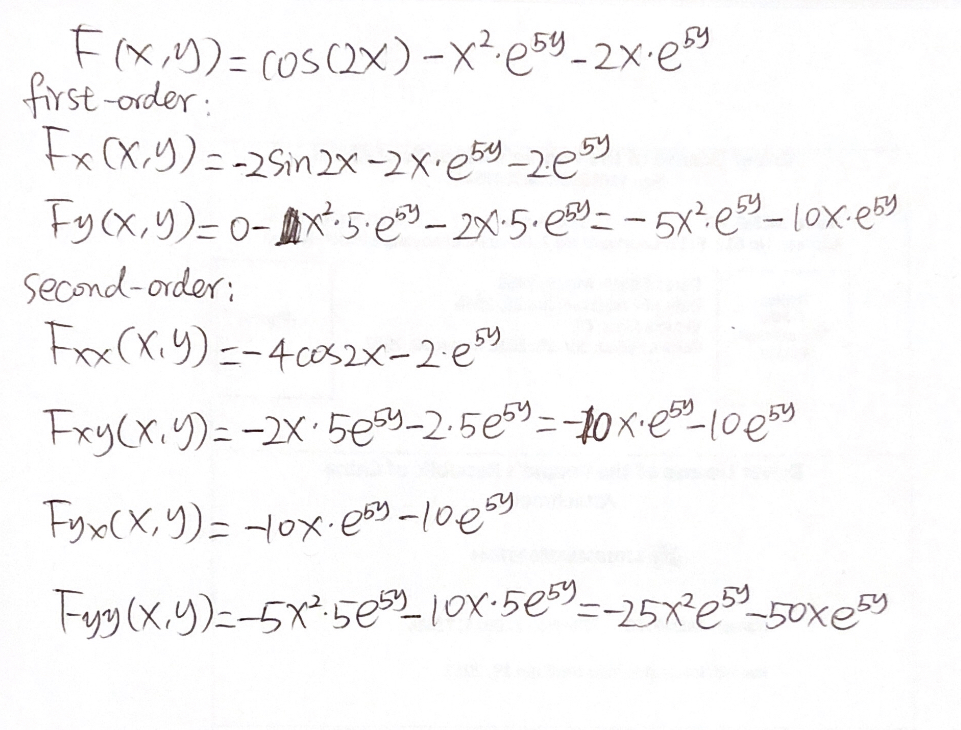 F(x,y)=cos(2x)-x²·e⁵ʸ-2x·e⁵ʸ
first-order:
Fx(x,y)=-2sin2x-2x·e⁵ʸ-2·e⁵ʸ
Fy(x,y)=0-x²·5·e⁵ʸ-2x·5·e⁵ʸ=-5x²·e⁵ʸ-10x·e⁵ʸ
second-order:
Fxx(x,y)=-4cos2x-2·e⁵ʸ
Fxy(x,y)=-2x·5e⁵ʸ-2·5e⁵ʸ=-10x·e⁵ʸ-10e⁵ʸ
Fyx(x,y)=-10x·e⁵ʸ-10e⁵ʸ
Fyy(x,y)=-5x²·5e⁵ʸ-10x·5e⁵ʸ=-25x²e⁵ʸ-50xe⁵ʸ